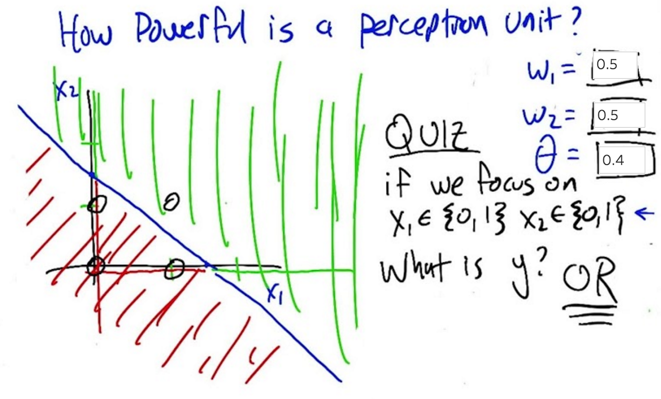 How Powerful is a perceptron unit?
X2
W1 = 0.5
W2 = 0.5
θ = 0.4
QUIZ
if we focus on
X1 ∈ {0,1} X2 ∈ {0,1} ←
What is y? OR
X1